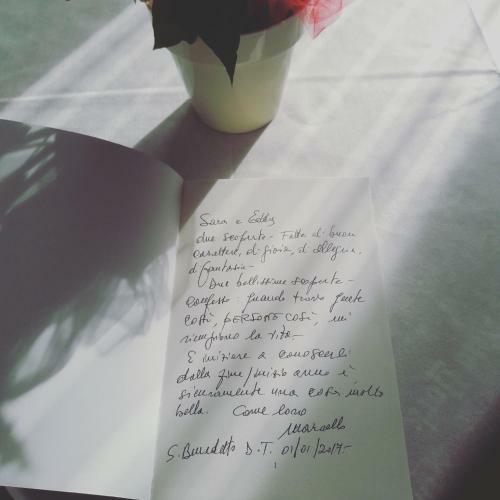 Sara e Eddy
due scoperte - Fatte di buon
carattere, di gioia, di allegria,
di fantasia -
Due bellissime scoperte -
confesso: quando trovo gente
così, PERSONE così, mi
riempiono la vita -
E iniziare a conoscerli
dalla fine/inizio anno è
sicuramente una cosa molto
bella. Come loro
Marcello
S. Benedetto D. T. 01/01/2017 -
1